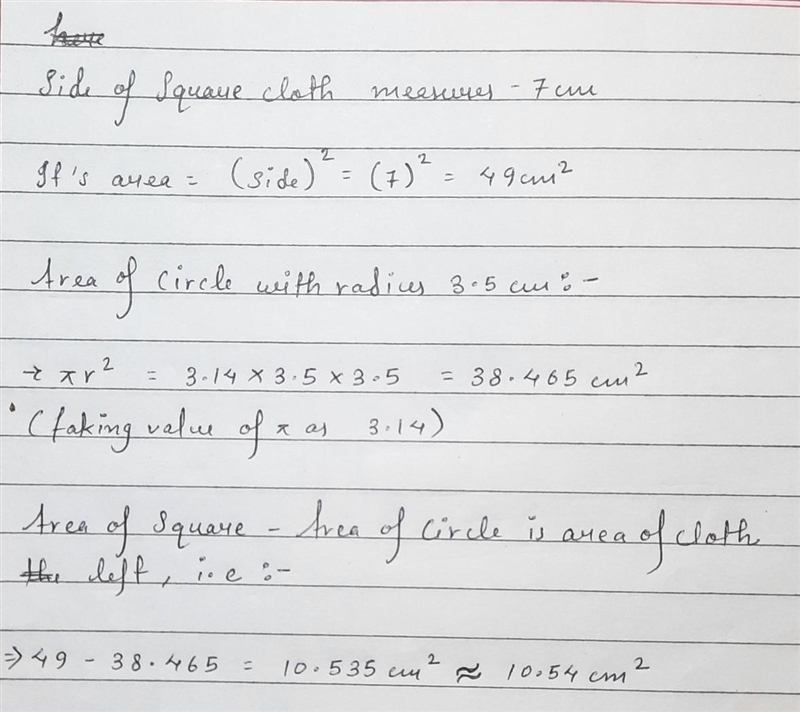 Side of Square cloth measures - 7 cm
It's area = (side)² = (7)² = 49 cm²
Area of Circle with radius 3.5 cm :-
→ πr² = 3.14 × 3.5 × 3.5 = 38.465 cm²
(taking value of π as 3.14)
Area of Square - Area of Circle is area of cloth
left, i.e :-
⇒ 49 - 38.465 = 10.535 cm² ≈ 10.54 cm²